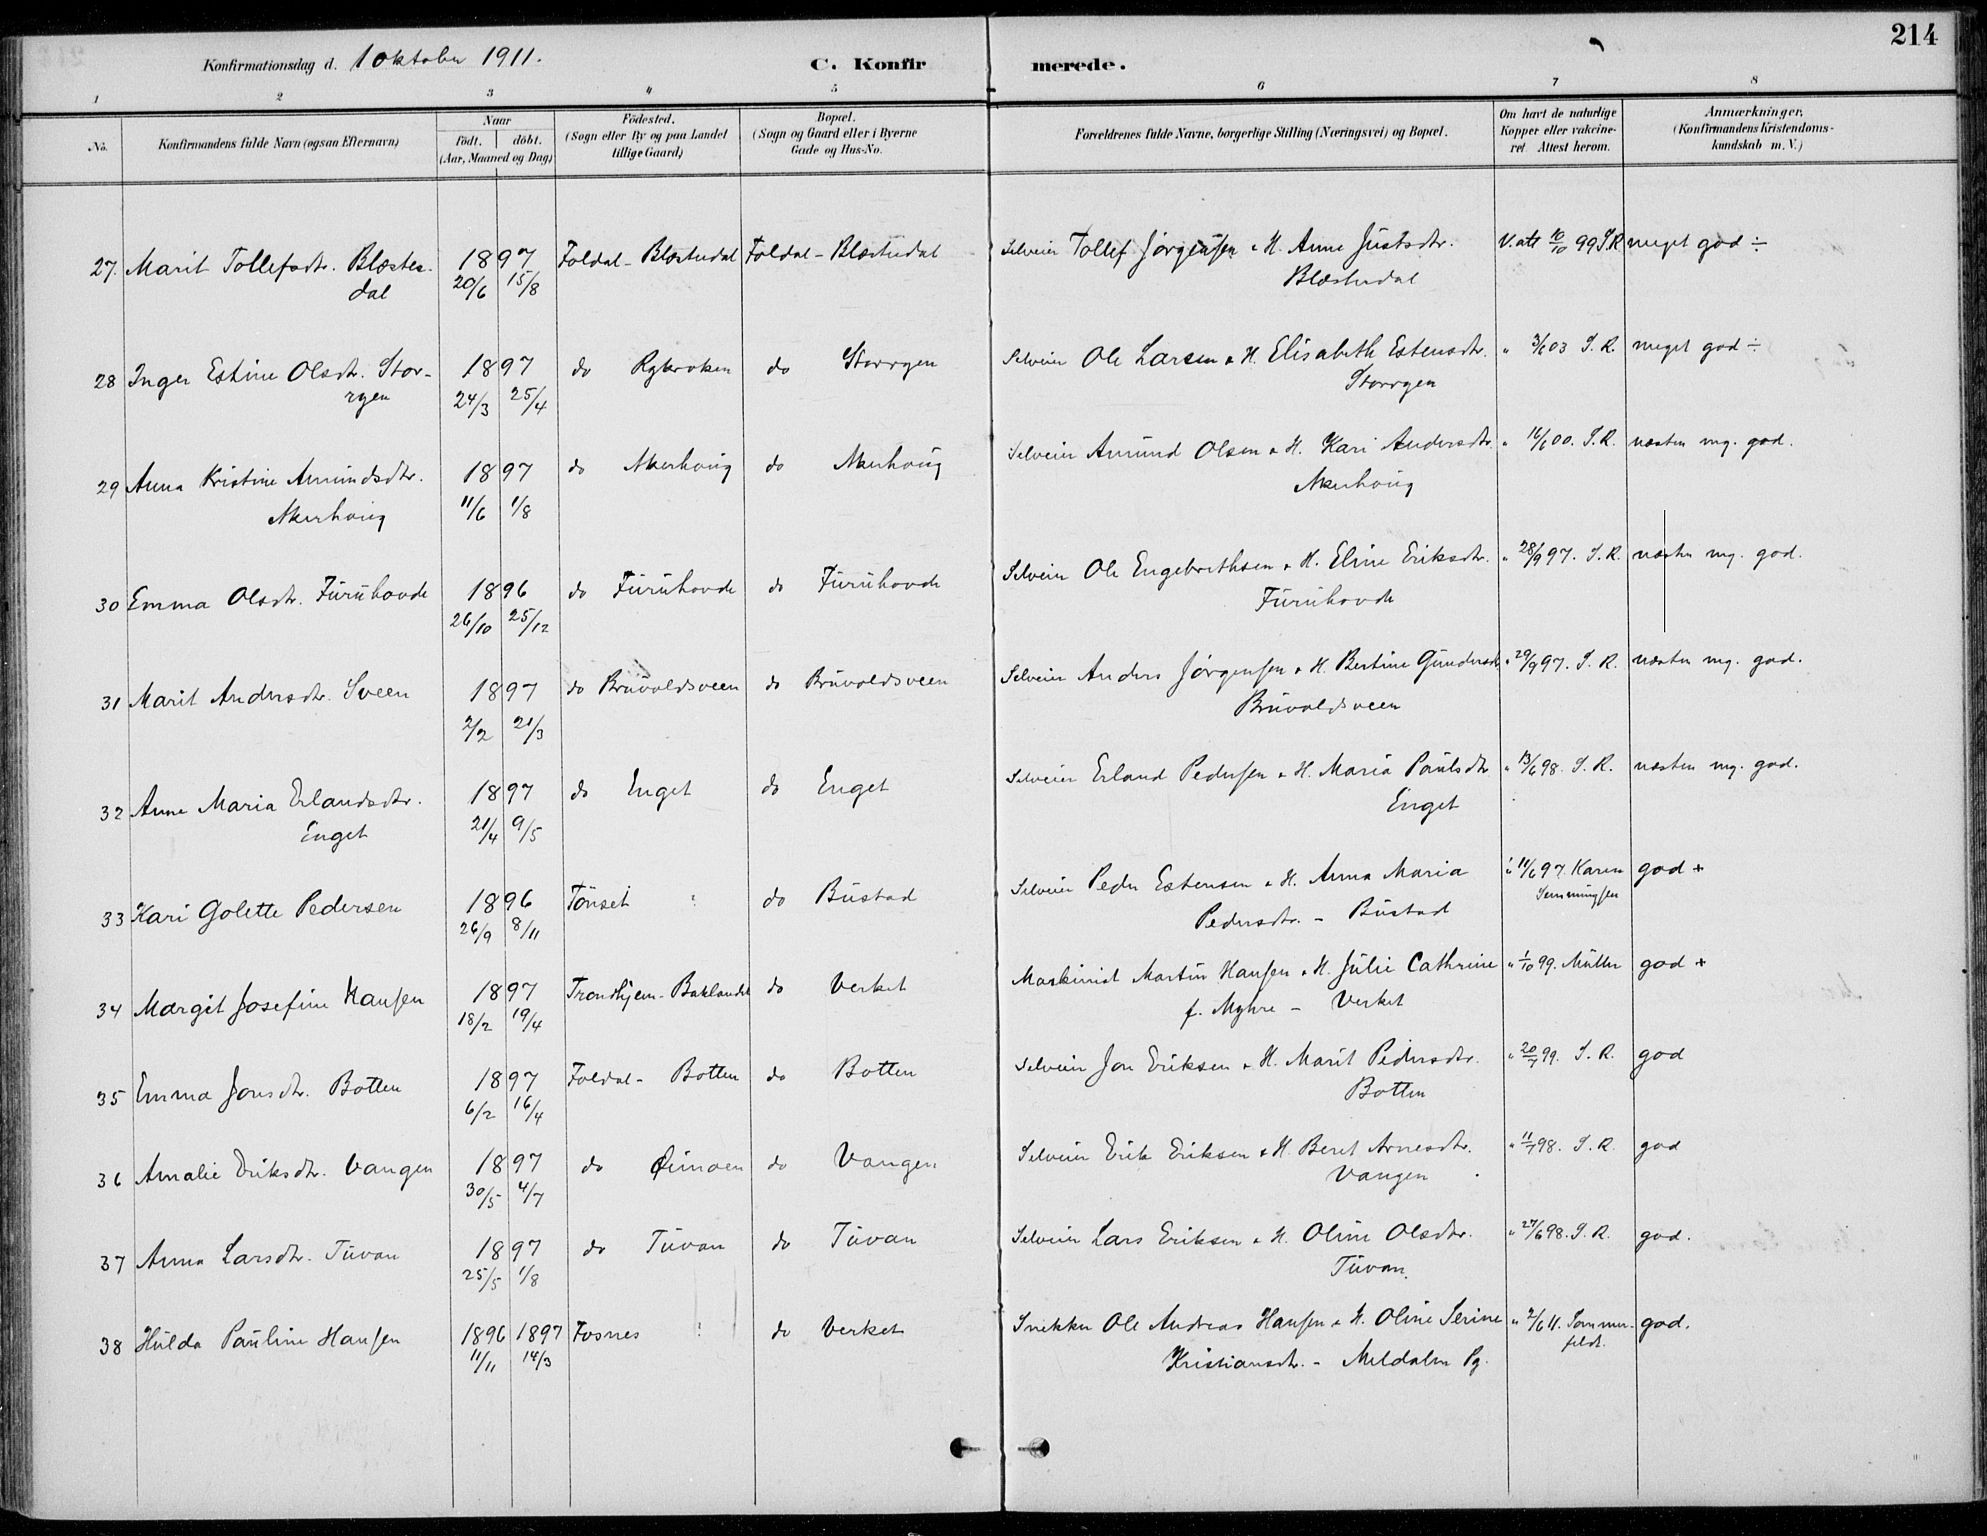 214
Konfirmationsdag d. 1 oktober 1911.
C. Konfirmerede.
1 2 3 4 5 6 7 8
No. Konfirmandens fulde Navn (ogsaa Efternavn) Naar født. døbt. (Aar, Maaned og Dag) Fødested. (Sogn eller By og paa Landet tillige Gaard) Bopæl. (Sogn og Gaard eller i Byerne Gade og Hus-No. Forældrenes fulde Navne, borgerlige Stilling (Næringsvei) og Bopæl. Om havt de naturlige Kopper eller vaccineret. Attest herom. Anmærkninger. (Konfirmandens Kristendomskundskab m. V.)
27. Marit Tollefsdtr. Blæster- 1897 Foldal - Blæsterdal Foldal - Blæsterdal Selveier Tollef Jørgensen & H. Anne Justsdtr. V. att 10/10 99 S.R. meget god ÷
dal 20/6 15/8 Blæsterdal
28 Inger Estine Olsdtr. Stor- 1897 do Rykroken do Storryen Selveier Ole Larsen & H. Elisabeth Estensdtr. " 3/6 03 S. R. meget god ÷
ryen 24/3 25/4 Storryen
29 Anna Kristine Amundsdtr. 1897 do Akerhoug do Akerhoug Selveier Amund Olsen & H. Kari Andersdtr. " 16/6 00. S. R. næsten mg. god.
Akerhoug 11/6 1/8 Akerhoug
30 Emma Olsdtr. Furuhovde 1896 do Furuhovde do Furuhovde Selveier Ole Engebrethsen & H. Eline Eriksdtr. " 28/9 97. S. R. næsten mg. god.
26/10 25/12 Furuhovde
31 Marit Andersdtr. Sveen 1897 do Bruvoldsveen do Bruvoldsveen Selveier Anders Jørgensen & H. Bertine Gundersdtr " 29/9 97. S. R. næsten mg. god.
2/2 21/3 Bruvoldsveen
32 Anne Maria Erlandsdtr. 1897 do Enget do Enget Selveier Erland Pedersen & H. Maria Paulsdtr " 13/6 98. S. R. næsten mg. god.
Enget 21/4 9/5 Enget
33 Kari Golette Pedersen 1896 Tønset do Bustad Selveier Peder Estensen & H. Anna Maria " 11/6 97 Karen god +
26/9 8/11 Pedersdtr. - Bustad Semmingsen
34 Margit Josefine Hansen 1897 Trondhjem - Baklandet do Verket Maskinist Martin Hansen & H. Julie Cathrine " 1/10 99. Müller god +
18/2 19/4 f. Myhre - Verket
35 Emma Jonsdtr. Botten 1897 Foldal - Botten do Botten Selveier Jon Eriksen & H. Marit Pedersdtr. " 20/7 99. S. R. god
6/2 16/4 Botten
36 Amalie Eriksdtr. Vangen 1897 do do Vangen Selveier Erik Eriksen & H. Beret Arnesdtr. " 11/7 98. S. R. god
30/5 4/7 Vangen
37 Anna Larsdtr. Tuvan 1897 do Tuvan do Tuvan Selveier Lars Eriksen & H. Oline Olsdtr. " 27/6 98. S. R. god.
25/5 1/8 Tuvan.
38 Hulda Pauline Hansen 1896 1897 Fosnes do Verket Snekker Ole Andreas Hansen & H. Oline Serine " 2/6 11. Sommer- god.
11/11 14/3 Kristiansdtr. - Meldalen Pg. feldt.